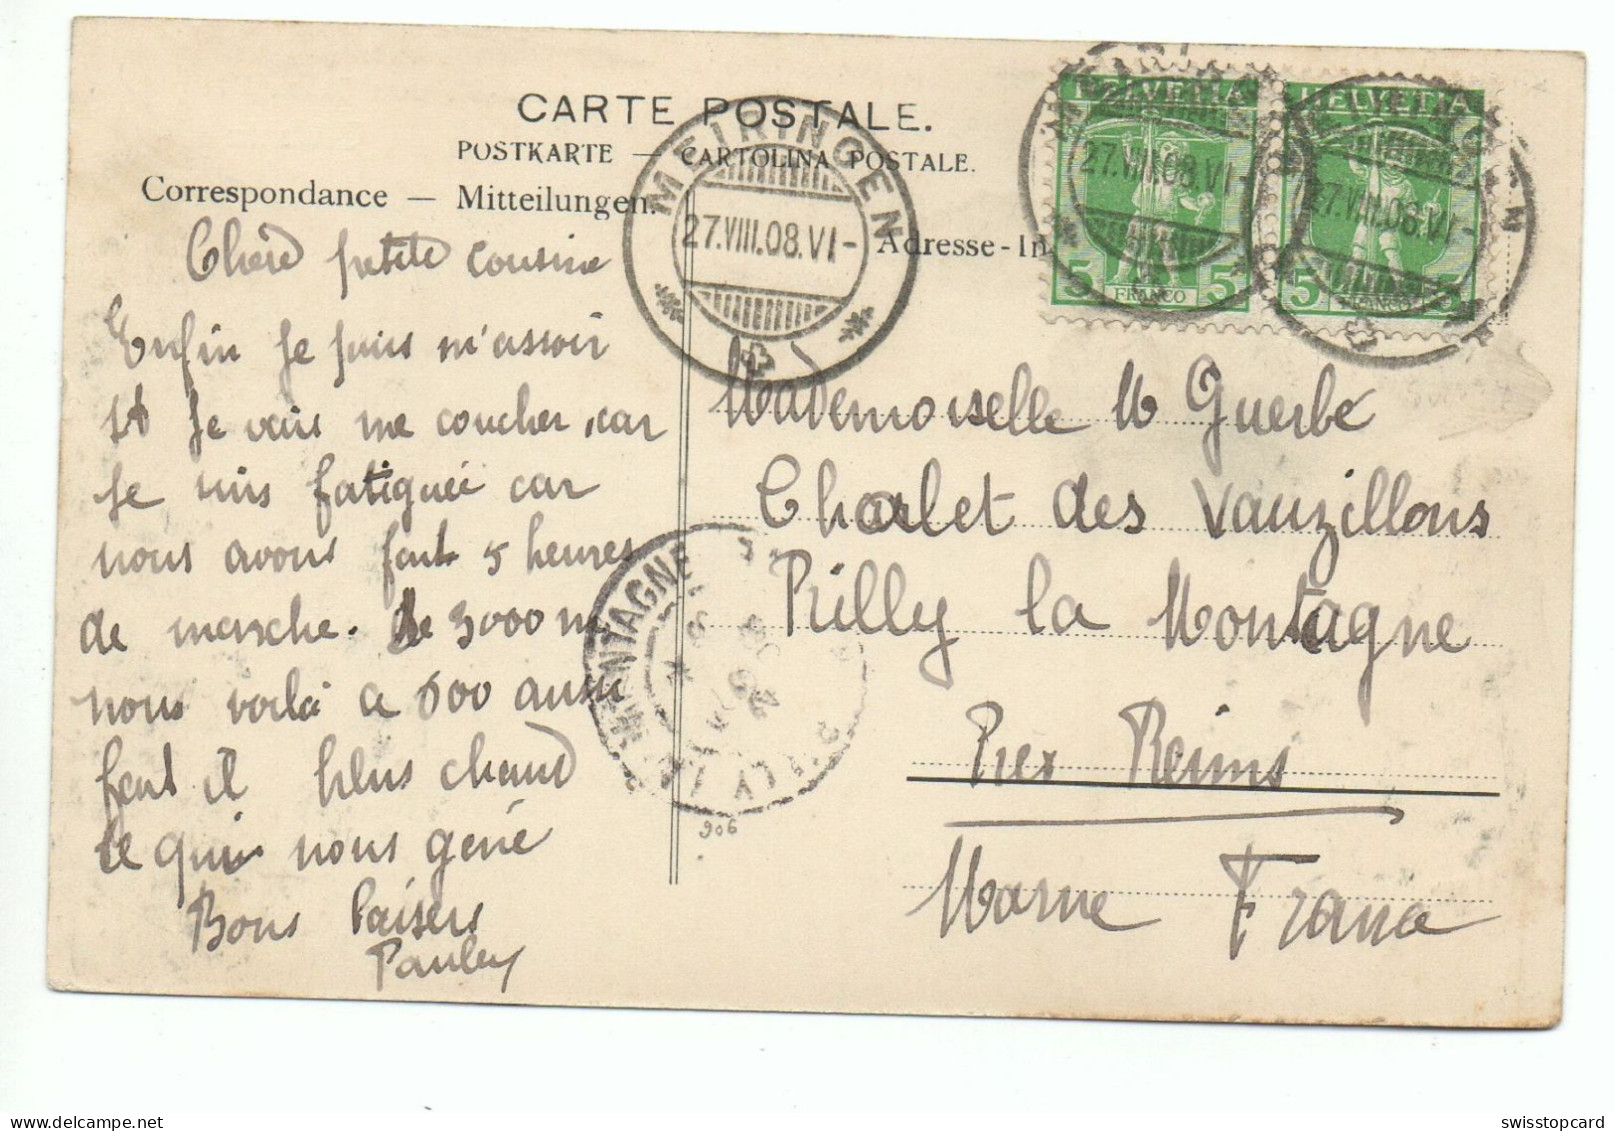 CARTE POSTALE.
POSTKARTE — CARTOLINA POSTALE.
Correspondance — Mitteilungen.
Adresse-In
MEIRINGEN
27.VIII.08.VI-
HELVETIA
5 FRANCO 5
27.VIII.08.VI-
HELVETIA
5 FRANCO 5
27.VIII.08.VI-
Chère petite cousine
Enfin je puis m'assoir
et je vais me coucher, car
je suis fatiguée car
nous avons fait 5 heures
de marche. De 3000 m
nous voilà a 600 aussi
fait il plus chaud
ce qui nous gène
Bons baisers
Pauley
Mademoiselle M Guerbe
Chalet des Vauzillons
Rilly la Montagne
Prex Reims
Marne France
MONTAGNE
906
swisstopcard